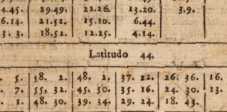 4.45. 39.49. 22.26. 13.20. 3.9.
6.14. 21.52. 15.10. 6.44.
3. 3. 18.52. 12.25. 4.14.
Latitudo 44.
5. 58. 2. 48. 2. 37. 22. 26. 36. 16.
7. 55. 32. 45. 50. 35. 16. 24. 30. 13.
1. 48. 30. 39. 34. 29. 24. 18. 43.